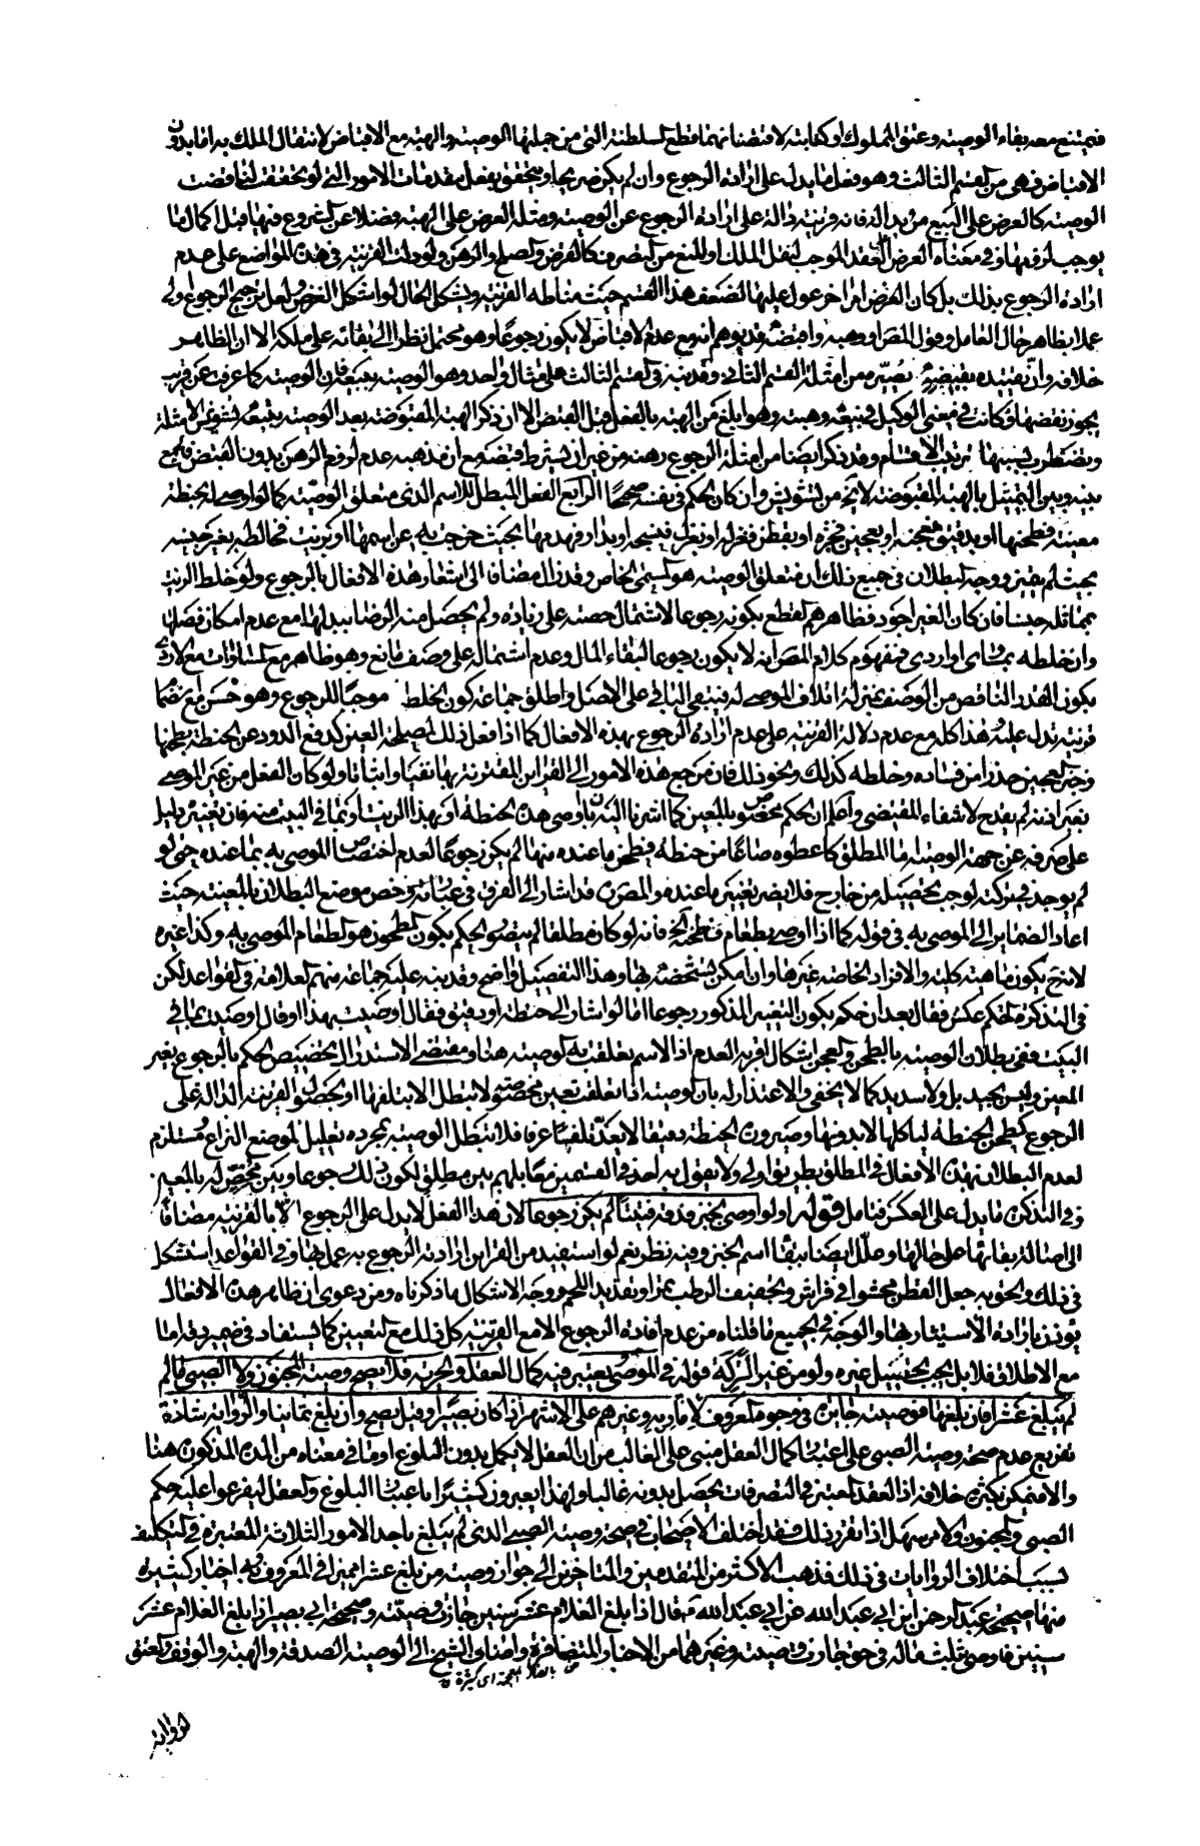 فيمتنع معه بقاء الوصية وعتق المملوك او كتابته لاقتضائهما قطع السلطنة التى من جملتها الوصية والهبة مع الاقباض لانتقال الملك به اما بدون
الاقباض فهى من القسم الثالث وهو فعل ما يدل على ارادة الرجوع وان لم يكن صريحا ويتحقق بفعل مقدمات الامور التى لو تحققت لناقضت
الوصية كالعرض على البيع مريدا له فانه قرينة دالة على ارادة الرجوع عن الوصية ومثله العرض على الهبة فضلا عن الشروع فيها قبل اكمال ما
يوجب لزومها وفى معناه العرض العقد الموجب لنقل الملك او المنع من التصرف كالقرض والصلح والرهن ولو دلت القرينة فى هذه المواضع على عدم
ارادة الرجوع بذلك بل كان الغرض امرا اخر عول عليها لضعف هذا القسم حيث مناطه القرينة ويشكل الحال لو اشكل الغرض ولعل ترجيح الرجوع اولى
عملا بظاهر حال العامل وقول المص او وهبه واقبضه قد يوهم انه مع عدم الاقباض لا يكون رجوعا وهو محتمل نظرا الى بقائه على ملكه الا ان الظاهر
خلافه وان تقييده بقبضه يصيره من امثلة القسم الثانى وقد نبه فى القسم الثالث على مثال واحد وهو الوصية ببيعه فان الوصية كما عرفت عن قريب
يجوز نقضها فكانت فى معنى الوكيل فى بيعه وهبته وهو ابلغ من الهبة بالفعل قبل القبض الا ان ذكر الهبة المقبوضة بعد الوصية ببيعه لتنويع الامثلة
ويضطرب بسببها ترتيب الاقسام وقد ذكر ايضا من امثلة الرجوع رهنه من غير ان يشترط قبضه مع ان مذهبه عدم لزوم الرهن بدون القبض فالجمع
بينه وبين التمثيل بالهبة المقبوضة لا يخ من تشويش وان كان الحكم فى نفسه صحيحا الرابع الفعل المبطل للاسم الذى هو متعلق الوصية كما لو اوصى له بحنطة
معينة فطحنها او بدقيق فعجنه او بعجين فخبزه او بقطن فغزله او بغزل فنسجه او بدار فهدمها بحيث خرجت به عن اسمها او بزيت فخلطه بغير جنسه
بحيث لم يتميز ووجه البطلان فى جميع ذلك ان متعلق الوصية هو المسمى الخاص وقد زال مضافا الى اشعار هذه الافعال بالرجوع ولو خلط الزيت
بمماثله جنسا فان كان الغير اجود فظاهرهم القطع بكونه رجوعا لاشتمال حصته على زيادة ولم يحصل منه الرضا ببذلها مع عدم امكان فصلها
وان خلطه بمساوى او اردى فمفهوم كلام المص انه لا يكون رجوعا لبقاء المال وعدم اشتماله على وصف مانع وهو ظاهر مع المساواة ومع الاردى
يكون القدر الناقص من الوصف بمنزلة اتلاف الموصى له فيبقى الباقى على الاصل واطلق جماعة كون الخلط موجبا للرجوع وهو حسن مع انضمام
قرينة تدل عليه هذا كله مع عدم دلالة القرينة على عدم ارادة الرجوع بهذه الافعال كما اذا فعل ذلك لمصلحة العين كدفع الدود عن الحنطة بطحنها
وخبز العجين حذرا من فساده وخلطه كذلك ونحو ذلك فان مرجع هذه الامور الى القراين المقترنة بها نفيا واثباتا ولو كان الفعل من غير الموصى
بغير اذنه لم يقدح لانتفاء المقتضى واعلم ان الحكم مخصوص بالمعين كما اشرنا اليه بان اوصى بهذه الحنطة او بهذا الزيت او بما فى البيت منه فان تغييره دليل
على صرفه عن جهة الوصية اما المطلق كاعطوه صاعا من حنطة فطحن ما عنده منها لم يكن رجوعا لعدم اختصاص الموصى به بما عنده حتى لو
لم يوجد فى تركته لوجب تحصيله من خارج فلا يضر تغيير ما عنده والمص قد اشار الى الفرق فى عبارته وخص موضع البطلان بالمعينة حيث
اعاد الضماير الى الموصى به فى قوله كما اذا اوصى بطعام فطحنه الخ فانه لو كان مطلقا لم يتضح الحكم بكون المطحون هو الطعام الموصى به وكذا غيره
لانه ح يكون ماهية كلية والافراد الخاصة غيرها وان امكن تشخصه بها وهذا التفصيل واضح وقد نبه عليه جماعة منهم العلامة فى القواعد لكن
فى التذكرة حكم عكس فقال بعد ان حكم بكون التغيير المذكور رجوعا اما لو اشار الى حنطة او دقيق فقال اوصيت بهذا او قال اوصيت بما فى
البيت ففى بطلان الوصية بالطحن والعجن اشكال اقربه العدم اذ الاسم تعلقت به الوصية هنا ومقتضى الاستدراك تخصيص الحكم بالرجوع بغير
المعين وليس بجيد بل ولا سديد كما لا يخفى والاعتذار له بان الوصية اذا تعلقت بعين مخصوصة لا تبطل الا بتلفها او بحصول القرينة الدالة على
الرجوع كطحن الحنطة لياكلها لا بدونها وصيرورة الحنطة دقيقا لا يعد تلفا عرفا فلا تبطل الوصية بمجرده تعليل لموضع النزاع ومستلزم
لعدم البطلان بهذه الافعال فى المطلق بطريق اولى ولا يقول به احد فى القسمين معا بل هم بين مطلق لكون ذلك رجوعا وبين مخصص له بالمعين
وفى التذكرة ما يدل على العكس فتامل قوله او لو اوصى بخبز فدقه فتيتا لم يكن رجوعا لان هذا الفعل لا يدل على الرجوع الا بالقرينة مضافا
الى اصالة بقائها على حالها وعلل ايضا ببقاء اسم الخبز وفيه نظر نعم لو استفيد من القراين ارادته الرجوع به عمل بها وفى القواعد استشكل
فى ذلك والحق به جعل القطن محشوا فى فراش وتجفيف الرطب تمرا وتقديد اللحم ووجه الاشكال ما ذكرناه ومن دعوى ان ظاهر هذه الافعال
يؤذن بارادة الاستيثار بها والوجه فى الجميع ما قلناه من عدم افادة الرجوع الا مع القرينة كل ذلك مع التعيين كما يستفاد فى ضمير دقه اما
مع الاطلاق فلا بل يجب تحصيل غيره ولو من غير التركة قوله فى الموصى يعتبر فيه كمال العقل والحرية فلا تصح وصية المجنون ولا الصبى ما لم
لم يبلغ عشرا فان بلغها فوصيته جايزة فى وجوه المعروف لاقاربه وغيرهم على الاشهر اذا كان بصيرا وقيل تصح وان بلغ ثمانيا والرواية شاذة
تفريع عدم صحة وصية الصبى على اعتبار كمال العقل مبنى على الغالب من ان العقل لا يكمل بدون البلوغ او ما فى معناه من المدة المذكورة هنا
والا فيمكن كثيرا خلافه اذ العقد المعتبر فى التصرفات يحصل بدونه غالبا ولهذا يعبرون كثيرا باعتبار البلوغ والعقل ليفرعوا عليه حكم
الصبى والمجنون والامر سهل اذا تقرر ذلك فقد اختلف الاصحاب فى صحة وصية الصبى الذى لم يبلغ باحد الامور الثلاثة المعتبرة فى التكليف
بسبب اختلاف الروايات فى ذلك فذهب الاكثر من المتقدمين والمتاخرين الى جواز وصية من بلغ عشرا مميزا فى المعروف وبه اخبار كثيرة
منها صحيحة عبد الرحمن ابن ابى عبد الله عن ابى عبد الله ع قال اذا بلغ الغلام عشر سنين جازت وصيته وصحيحة ابى بصير اذا بلغ الغلام عشر
سنين فاوصى بثلث ماله فى حق جازت وصيته وغيرهما من الاخبار المتضافرة واضاف الشيخ الى الوصية الصدقة والهبة والوقف والعتق
لرواية